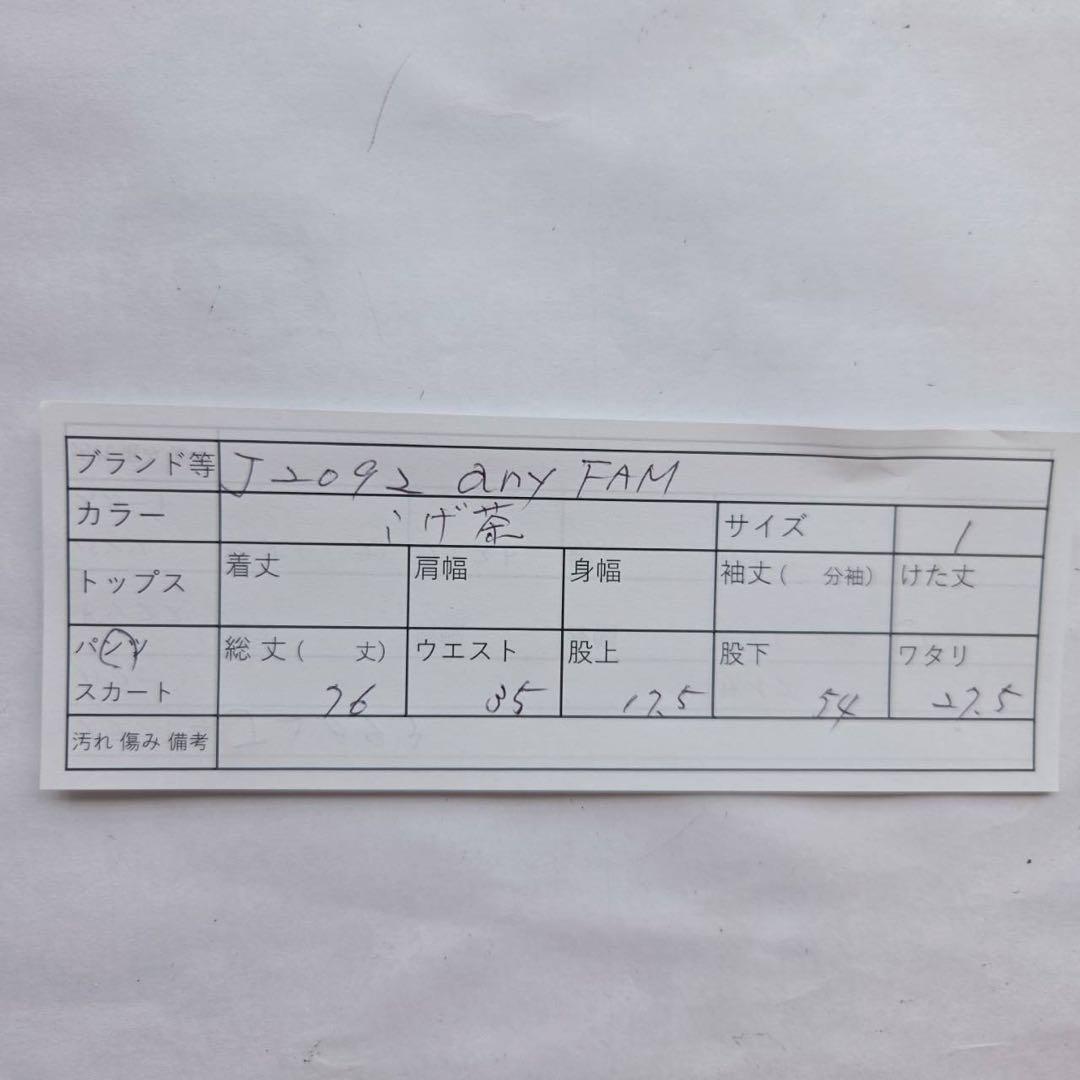 ブランド等 J2092 any FAM
カラー こげ茶 サイズ 1
トップス 着丈 肩幅 身幅 袖丈( 分袖) けた丈
パンツ 総丈( 丈) ウエスト 股上 股下 ワタリ
スカート 76 35 17.5 54 27.5
汚れ 傷み 備考